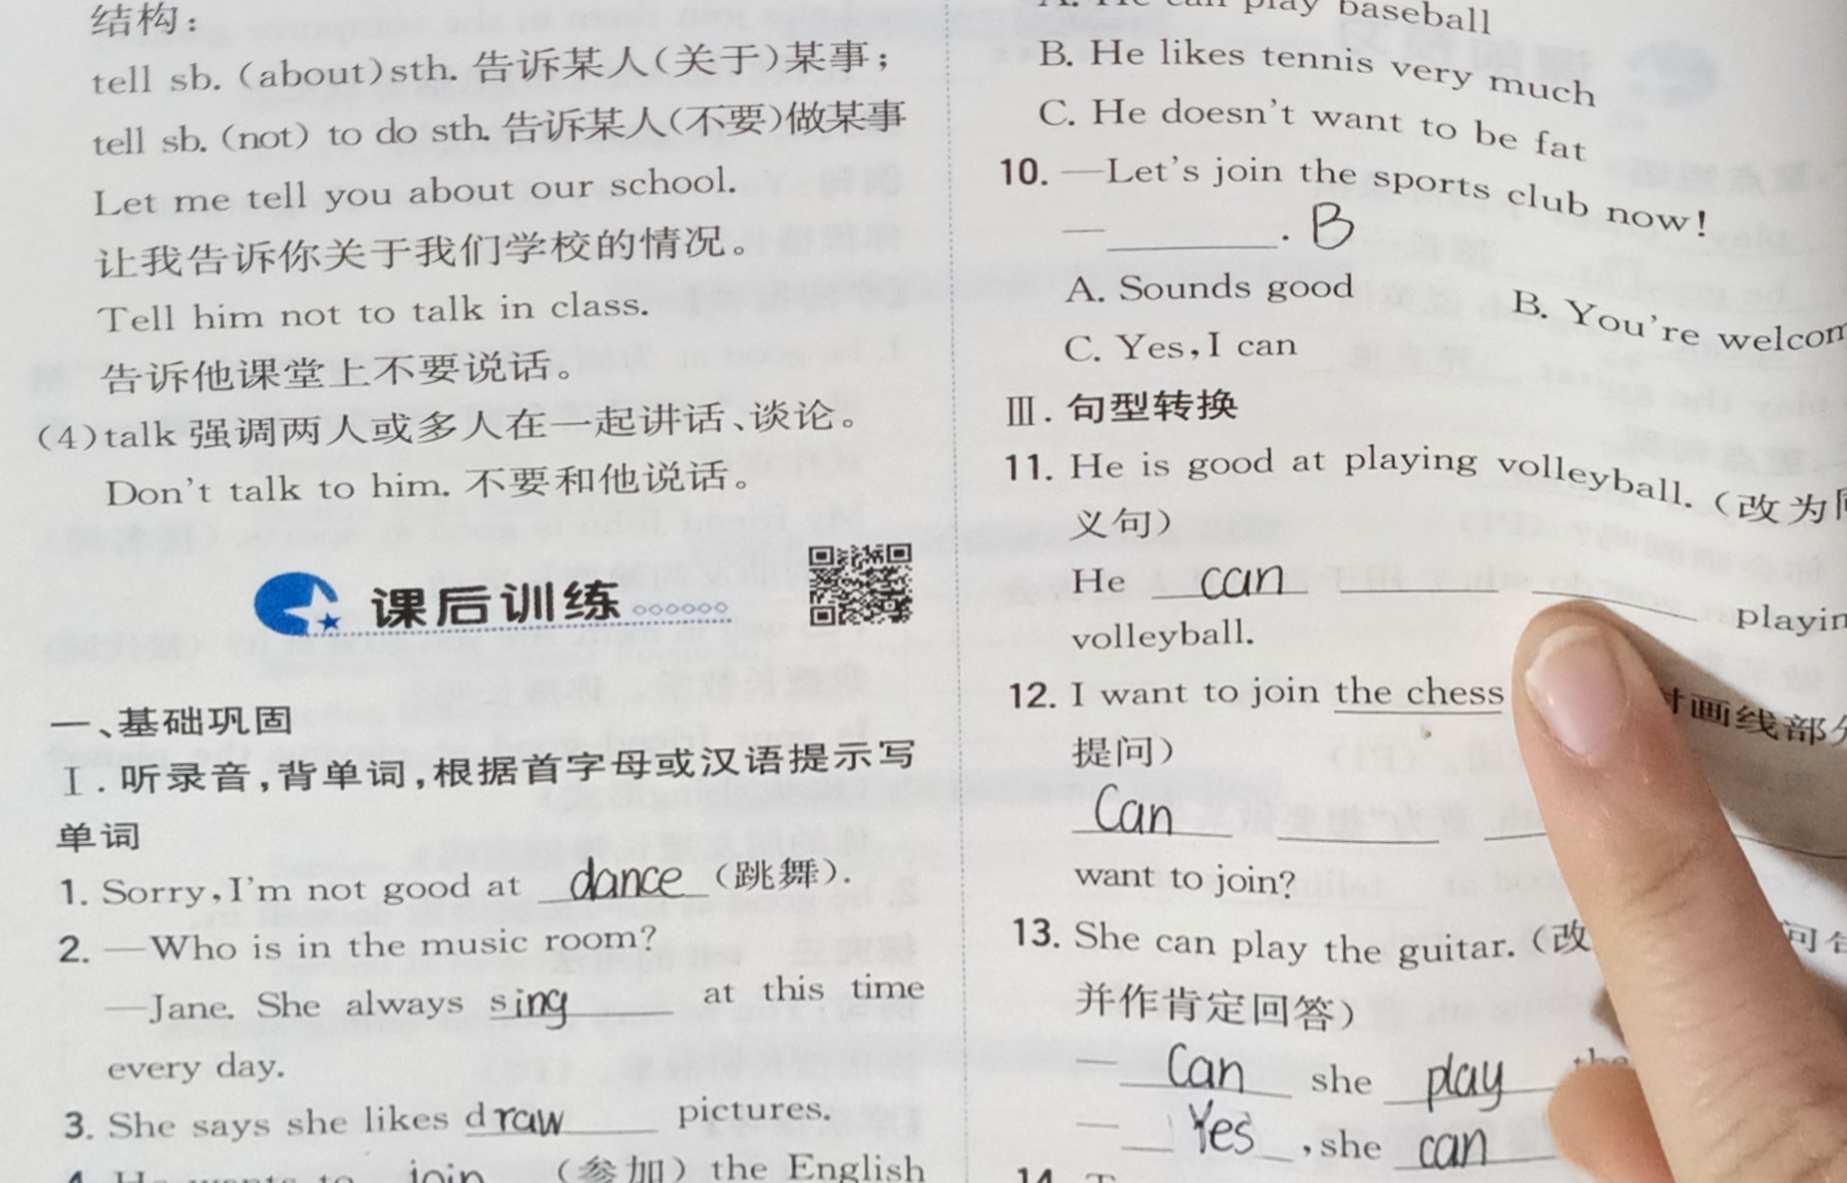 结构:
tell sb. (about)sth. 告诉某人(关于)某事;
tell sb. (not) to do sth. 告诉某人(不要)做某事
Let me tell you about our school.
让我告诉你关于我们学校的情况。
Tell him not to talk in class.
告诉他课堂上不要说话。
(4)talk 强调两人或多人在一起讲话、谈论。
Don't talk to him. 不要和他说话。
课后训练
一、基础巩固
Ⅰ. 听录音,背单词,根据首字母或汉语提示写
单词
1. Sorry, I'm not good at dance (跳舞).
2. —Who is in the music room?
—Jane. She always sing at this time
every day.
3. She says she likes draw pictures.
4. He wants to join (参加) the English
A. He can play baseball
B. He likes tennis very much
C. He doesn't want to be fat
10. —Let's join the sports club now!
—________. B
A. Sounds good B. You're
C. Yes, I can
Ⅲ. 句型转换
11. He is good at playing volleyball. (改为
义句)
He can ________ ________
volleyball.
12. I want to join the chess 画线部
提问)
Can ________ ________
want to join?
13. She can play the guitar. (改 问
并作肯定回答)
— Can she play the
— Yes , she can
14.